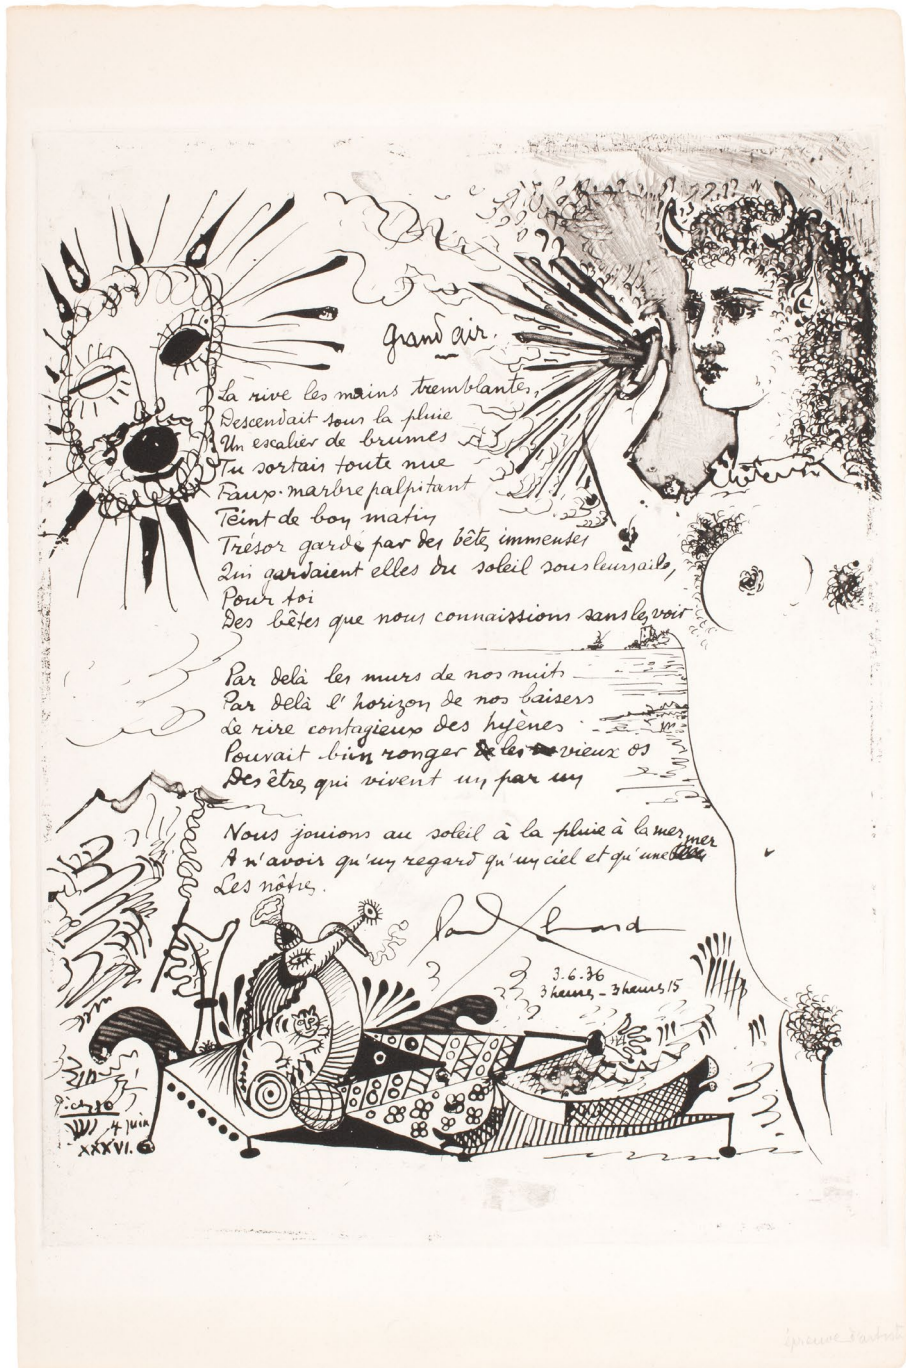 Grand air.
La rive les mains tremblantes,
Descendait sous la pluie
Un escalier de brumes
Tu sortais toute nue
Faux marbre palpitant
Teint de bon matin
Trésor gardé par des bêtes immenses
Qui gardaient elles du soleil sous leurs ailes,
Pour toi
Des bêtes que nous connaissions sans les voir
Par delà les murs de nos nuits
Par delà l'horizon de nos baisers
Le rire contagieux des hyènes
Pouvait bien ronger les vieux os
Des êtres qui vivent un par un
Nous jouions au soleil à la pluie à la mer
A n'avoir qu'un regard qu'un ciel et qu'une mer
Les nôtres.
Paul Eluard
3.6.36
3 heures - 3 heures 15
Picasso
4 juin
XXXVI.
épreuve d'artiste